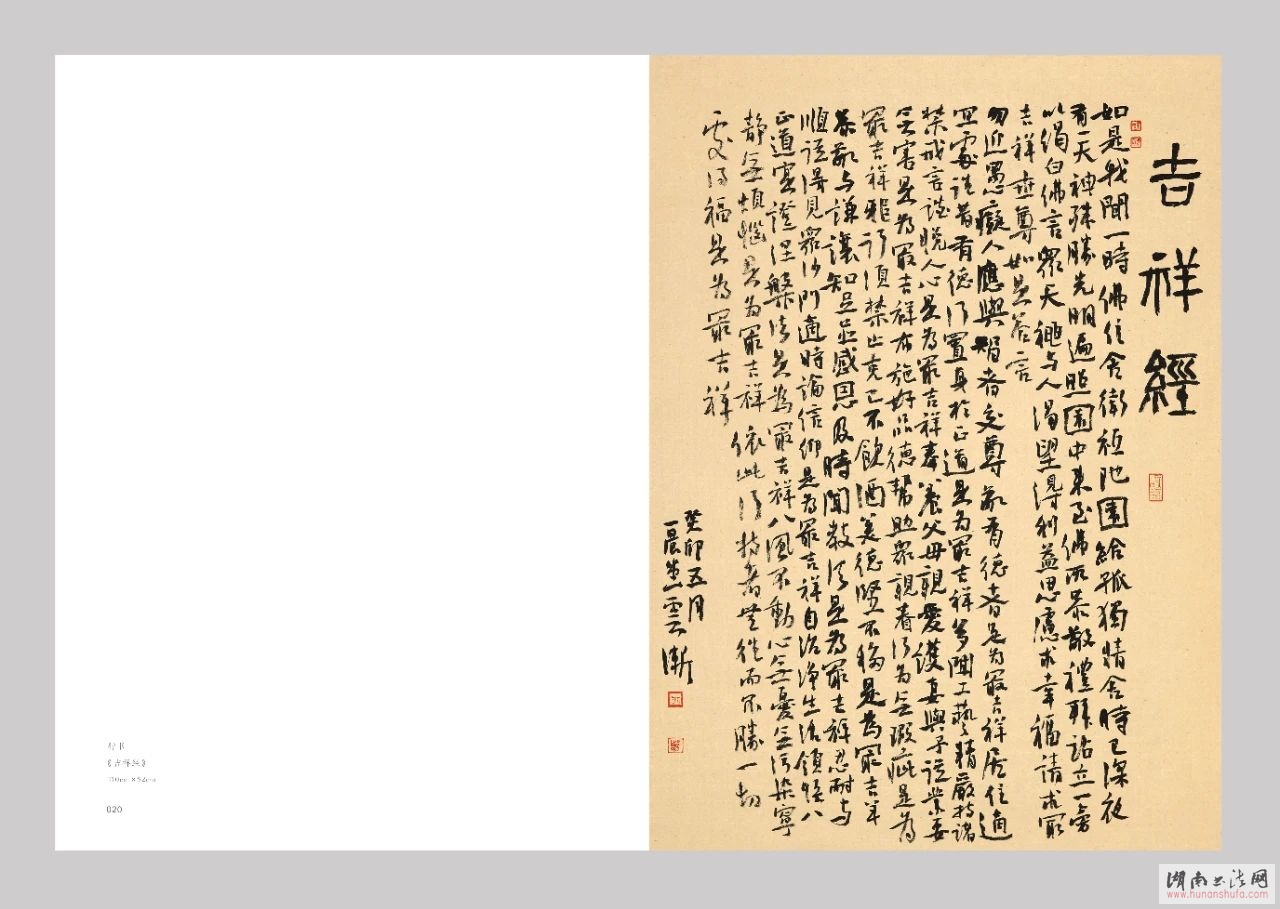 吉祥經
如是我聞一時佛住舍衛祇陀園給孤獨精舍時已深夜
有一天神殊勝光明遍照園中來至佛所恭敬禮拜站立一旁
以偈白佛言眾天神与人渴望得利益思慮求幸福請求最
吉祥世尊如是答言
勿近愚癡人應與智者交尊敬有德者是為最吉祥居住適
宜處往昔有德行置身於正道是為最吉祥多聞工藝精嚴持諸
禁戒言談悅人心是為最吉祥奉養父母親愛護妻與子從業要
無害是為最吉祥布施好品德幫助眾親眷行為無瑕疵是為
最吉祥邪行須禁止克己不飲酒美德堅不移是為最吉羊
恭敬与謙讓知足並感恩及時聞教法是為最吉祥忍耐与
順從得見眾沙門適時論信仰是為最吉祥自治淨生活領悟八
正道實證涅槃法是為最吉祥八風不動心無憂無污染寧
靜無煩惱是為最吉祥依此行持者無往而不勝一切
處得福是為最吉祥
癸卯五月
一晨堂雲漸
行书
《吉祥经》
110cm×52cm
020
湖南书法网
www.hunanshufa.com